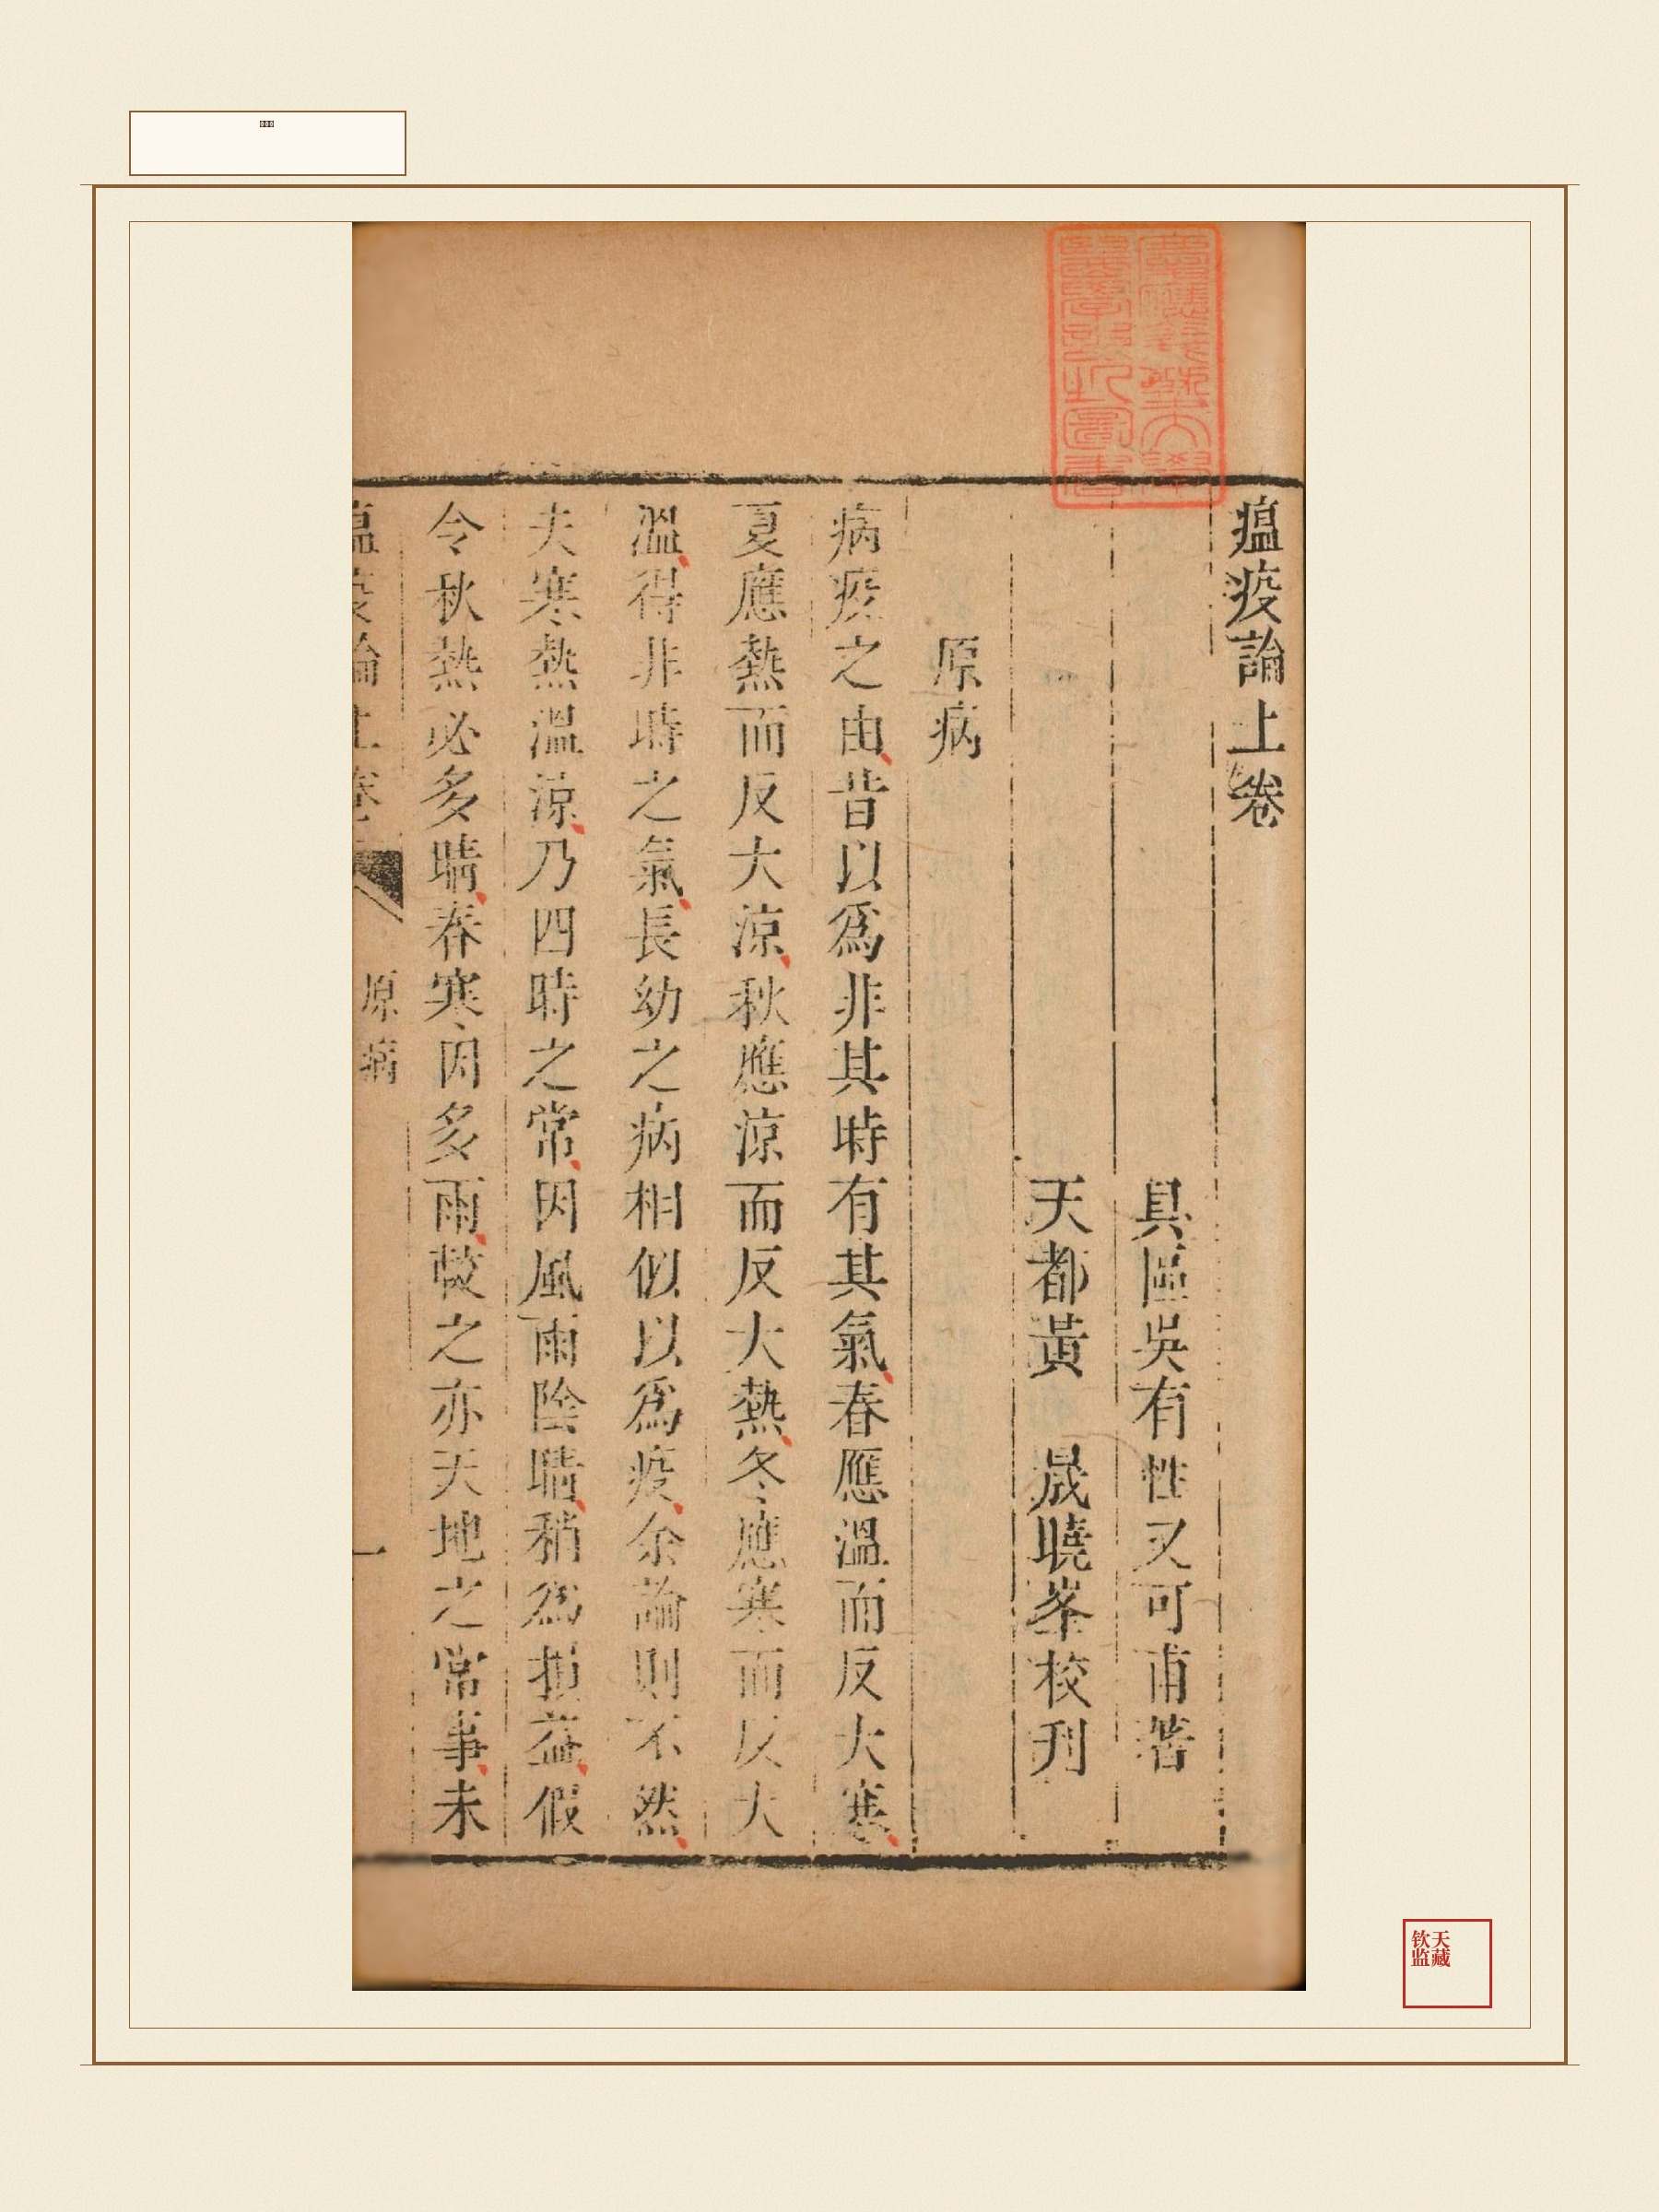 瘟疫論上卷
具區吳有性又可甫著
天都黃　晟曉峯校刋
原病
病疫之由昔以爲非其時有其氣春應溫而反大寒
夏應熱而反大涼秋應涼而反大熱冬應寒而反大
溫得非時之氣長幼之病相似以爲疫余論則不然
夫寒熱溫涼乃四時之常因風雨陰晴稍爲損益假
令秋熱必多晴春寒因多雨較之亦天地之常事未
瘟疫論上卷
原病
一
慶應義塾大學
醫學部北里圖書
钦天
监藏